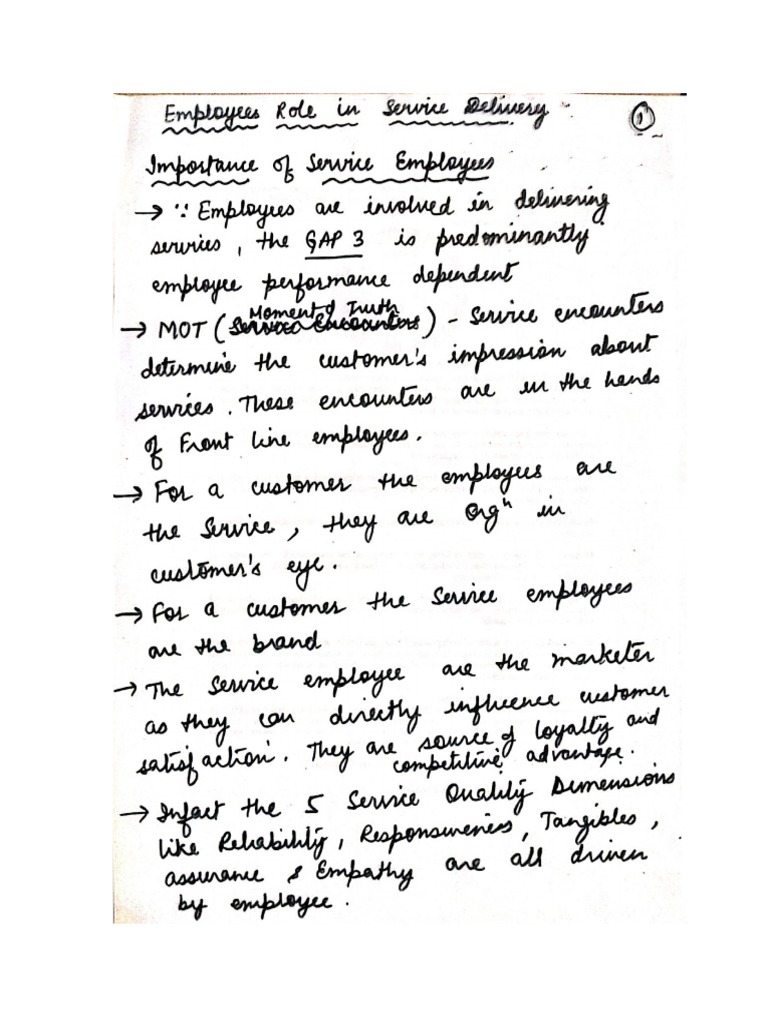 Employees Role in Service Delivery
1
Importance of Service Employees
→ ∵ Employees are involved in delivering
services, the GAP 3 is predominantly
employee performance dependent
Moment of Truth
→ MOT (Service Encounters) - Service encounters
determine the customer's impression about
services. These encounters are in the hands
of Front Line employees.
→ For a customer the employees are
the Service, they are Orgⁿ in
customer's eye.
→ For a customer the Service employees
are the brand
→ The Service employee are the marketer
as they can directly influence customer
satisfaction. They are source of loyalty and
competitive advantage.
→ Infact the 5 Service Quality Dimensions
like Reliability, Responsiveness, Tangibles,
assurance & Empathy are all driven
by employee.